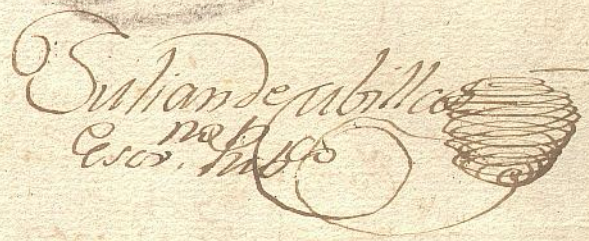 Juliandecubillas
Escr.no pub.co